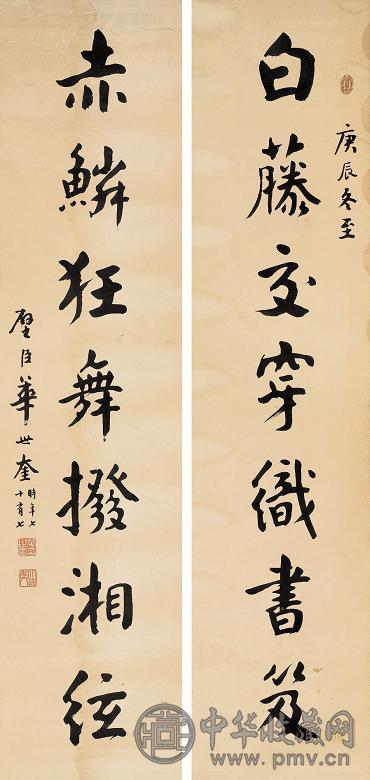 庚辰冬至
白藤交穿織書笈
赤鱗狂舞撥湘絃
璧臣華世奎
時年七
十有七
中华收藏网
www.pmv.cn